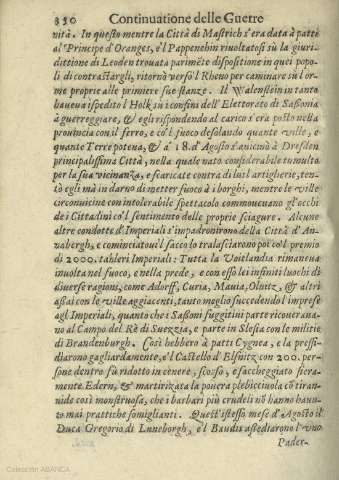 850 Continuatione delle Guerre
nità. In questo mentre la Città di Mastrich s'era data à patti
al Principe d'Oranges, e'l Pappenhin riuoltatosi sù la giuri-
dittione di Leoden trouata parimēte dispositione in quei popo-
li di contrastargli, ritornò verso'l Rheno per caminare sù l'or-
me proprie alle primiere sue stanze. Il Walenstoin in tanto
haueua ispedito l'Holk sù i confini dell'Elettorato di Sassonia
à guerreggiare, & egli rispondendo al carico s'era posto nella
prouincia con il ferro, e co'l fuoco desolando quante ville, e
quante Terre poteua, & a' 18. d'Agosto s'auicinò à Dresden
principalissima Città, nella quale nato considerabile tumulto
per la sua vicinanza, e scaricate contra di lui l'artiglierie, ten-
tò egli mà in darno di metter fuoco à i borghi, mentre le ville
circonuicine con intolerabile spettacolo commoueano gl'occhi
de i Cittadini co'l sentimento delle proprie sciagure. Alcune
altre condotte d'Imperiali s'impadronirono della Città d'An-
nabergh, e cominciatoui'l sacco lo tralasciarono poi co'l premio
di 2000. talleri Imperiali: Tutta la Voitlandia rimaneua
inuolta nel fuoco, e nella prede, e con esso lei infiniti luochi di
diuerse ragioni, come Adorff, Curia, Mauia, Olnitz, & altri
assai con le ville aggiacenti, tanto meglio succedendo l'imprese
agl'Imperiali, quanto che i Sassoni fuggitiui parte ricouerana-
no al Campo del Rè di Suezzia, e parte in Slesia con le militie
di Brandenburgh. Così hebbero à patti Cygnea, e la pressi-
diarono gagliardamente, e'l Castello d'Elsnitz con 200. per-
sone dentro fù ridotto in cenere, scorso, e saccheggiato fiera-
mente Edern, & martirizata la pouera plebicciuola cō tiran-
nide così monstruosa, che i barbari più crudeli nō hanno hauu-
to mai prattiche somiglianti. Quest'istesso mese d'Agosto il
Duca Gregorio di Luneborgh, e'l Baudis assediarono l'vno
Pader-
Colección ABANCA